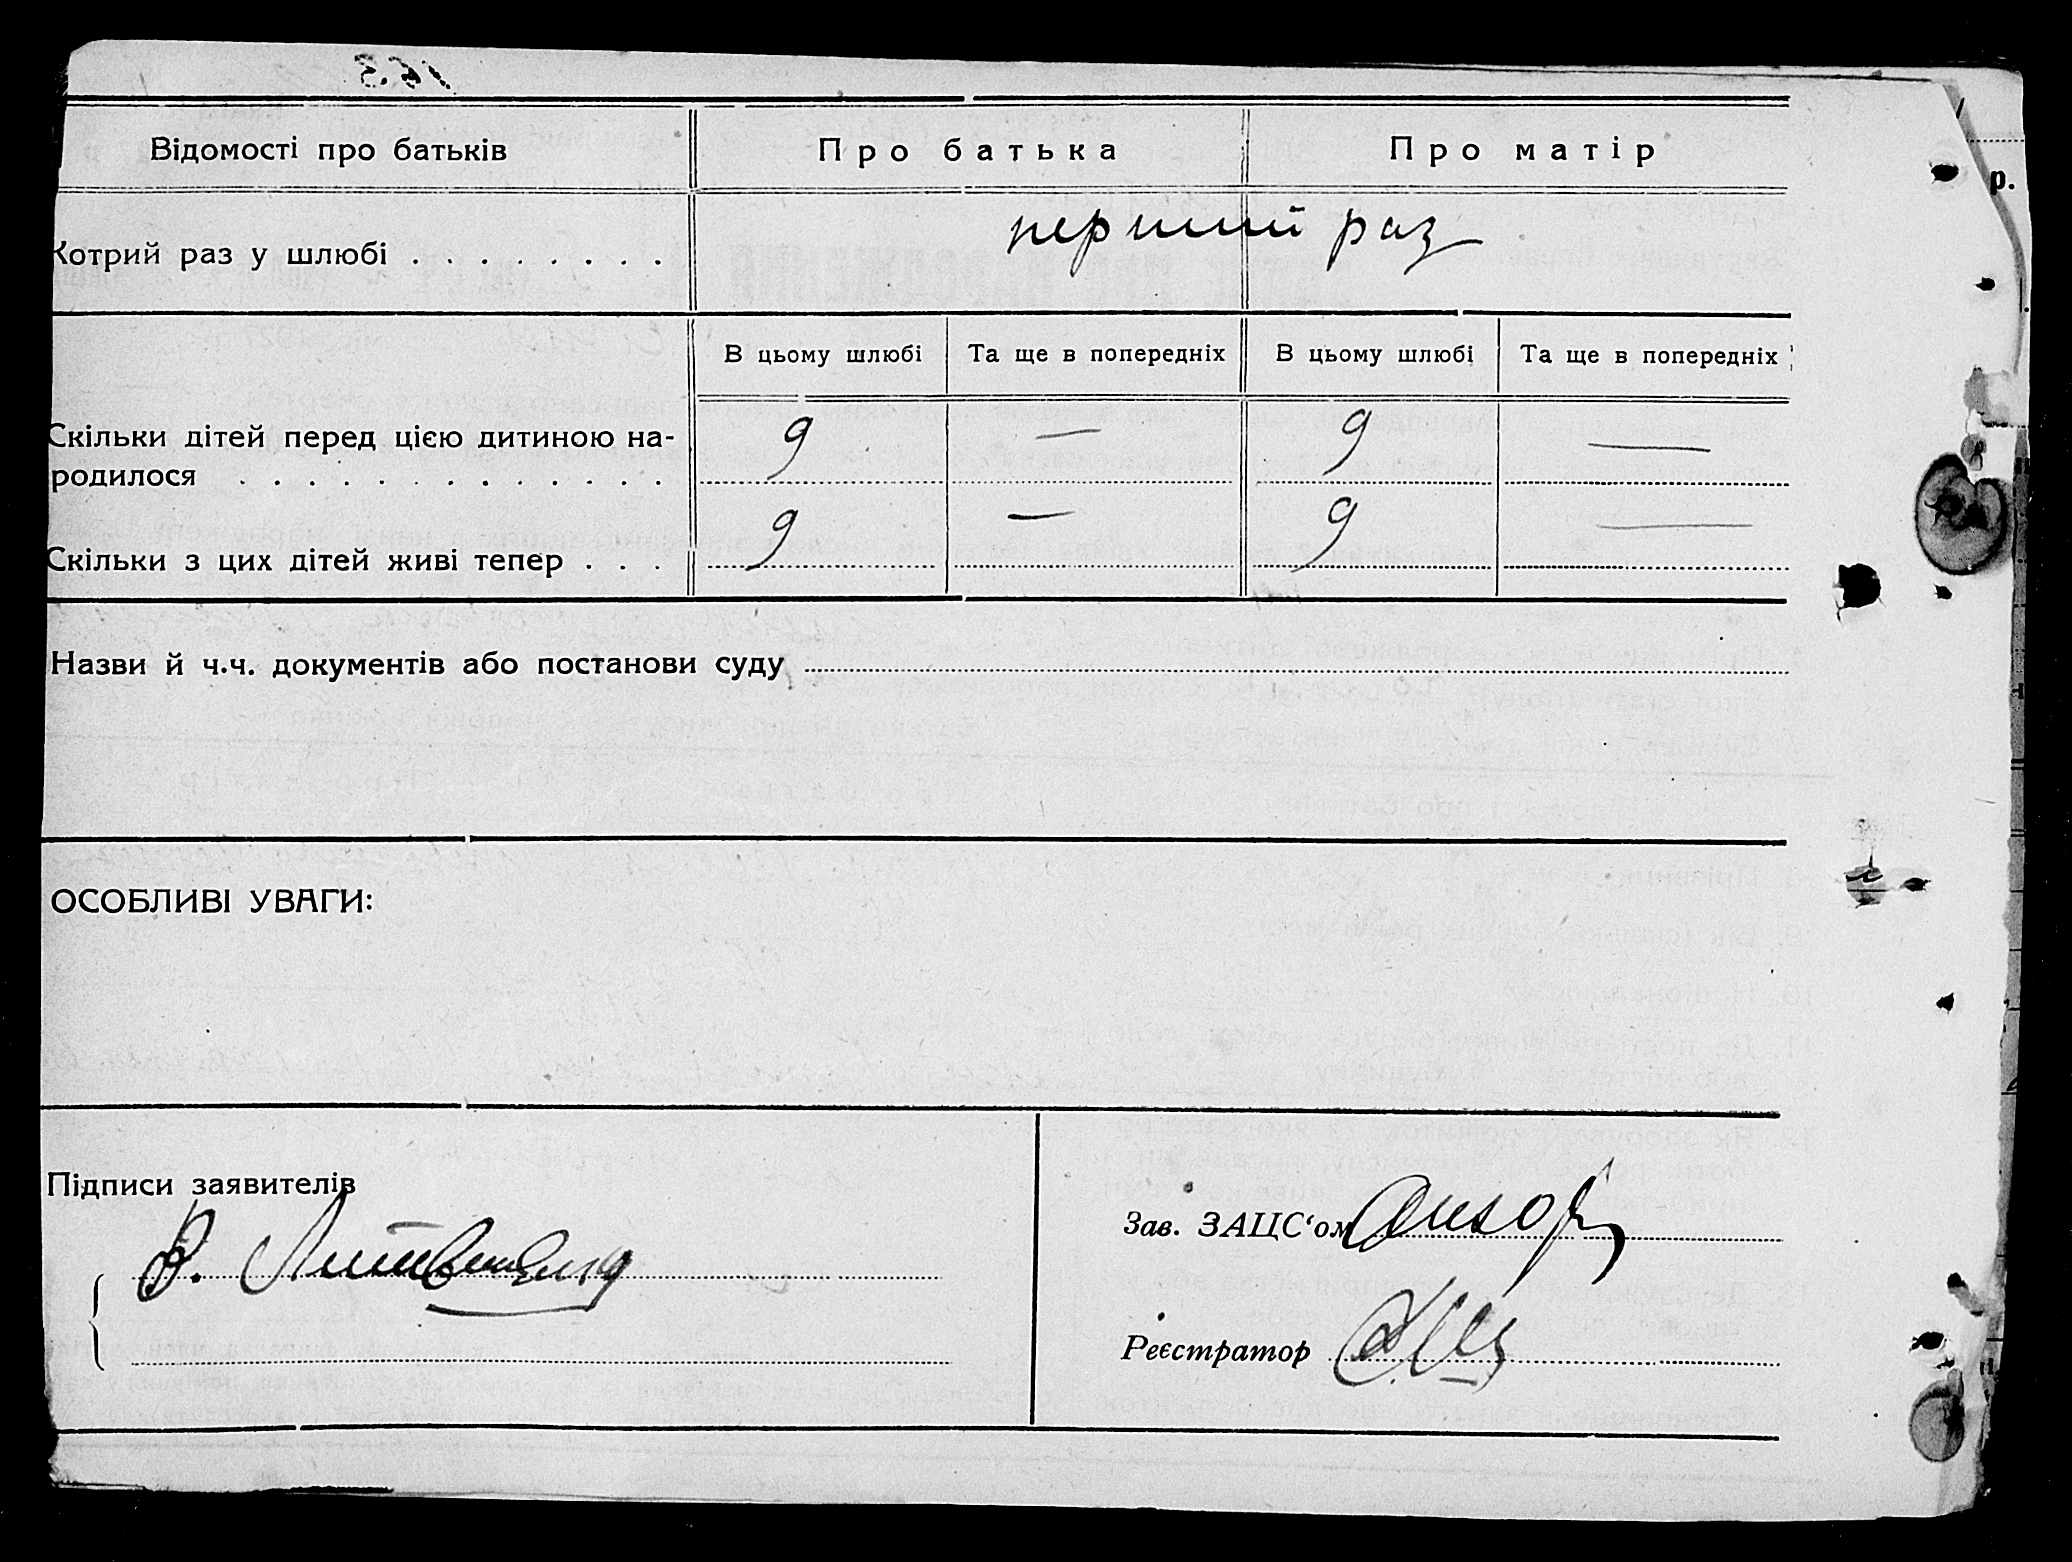 Відомості про батьків Про батька Про матір
Котрий раз у шлюбі . . . . . . . . перший раз
В цьому шлюбі Та ще в попередніх В цьому шлюбі Та ще в попередніх
Скільки дітей перед цією дитиною на-
родилося . . . . . . . . . . . . . 9 — 9 —
Скільки з цих дітей живі тепер . . . 9 — 9 —
Назви й ч.ч. документів або постанови суду
ОСОБЛИВІ УВАГИ:
Підписи заявителів
Зав. ЗАЦС‘ом
Реєстратор
р.